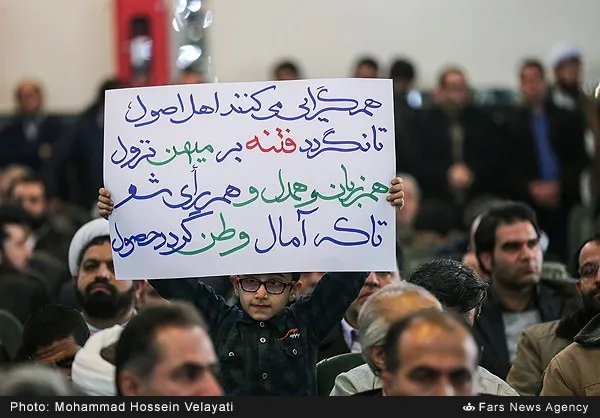 همگرایی می کنند اهل اصول
تا نگردد فتنه بر میهن نزول
همزبان و همدل و همرأی شو
تا که آمال وطن گردد حصول
Photo: Mohammad Hossein Velayati
Fars News Agency